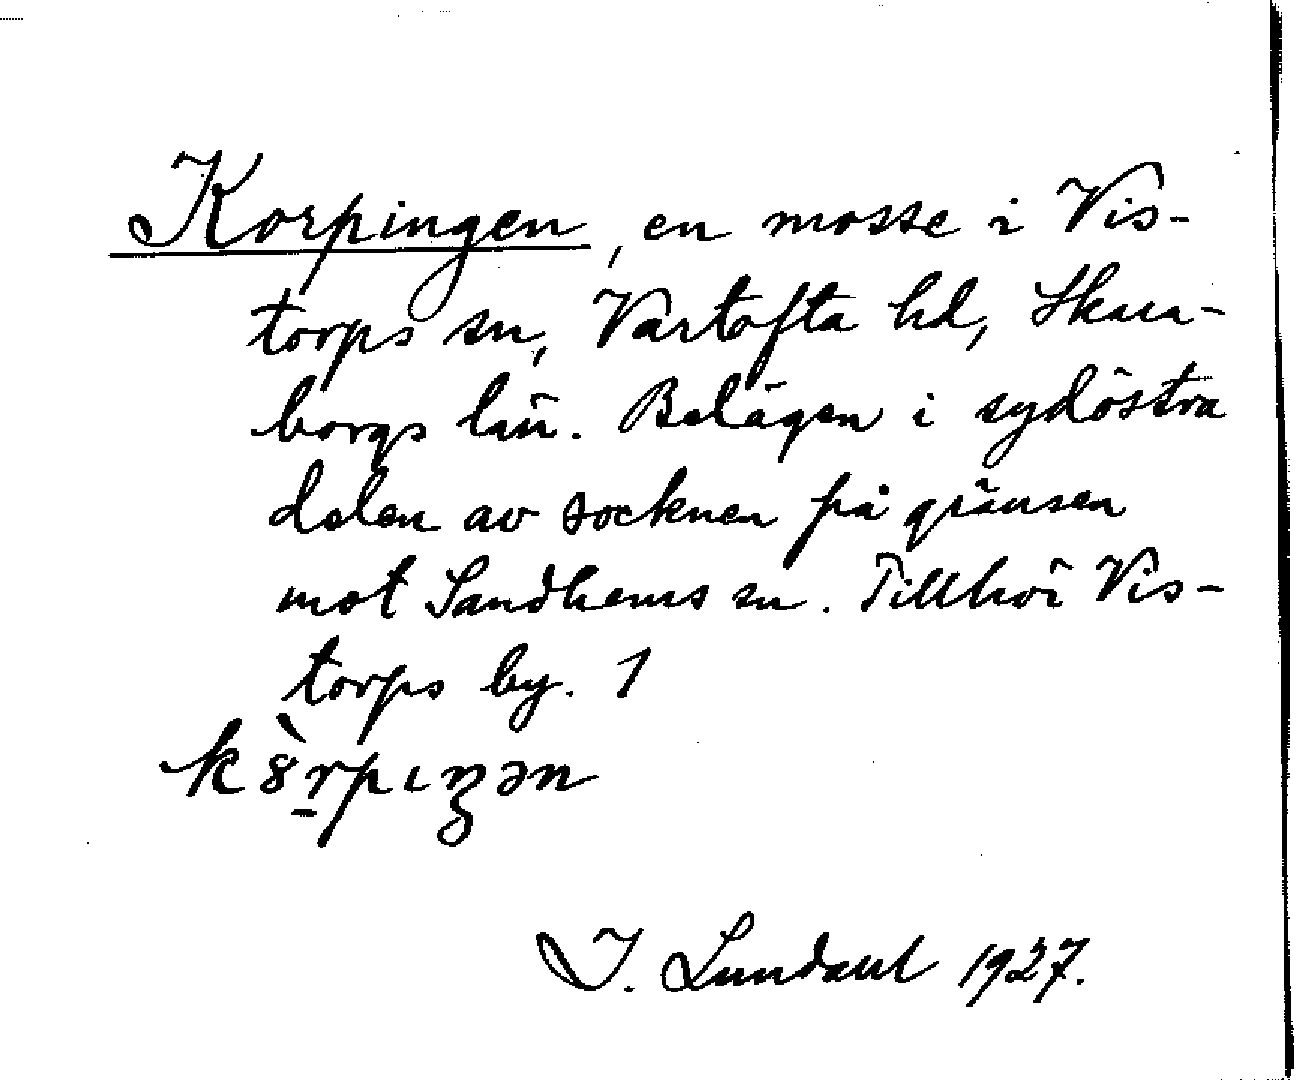 Korpingen, en mosse i Vis-
torps sn, Vartofta hd, Skara-
borgs län. Belägen i sydöstra
delen av socknen på gränsen
mot Sandhems sn. Tillhör Vis-
torps by. 1
k8̀r̠pıŋən
I. Lundahl 1927.